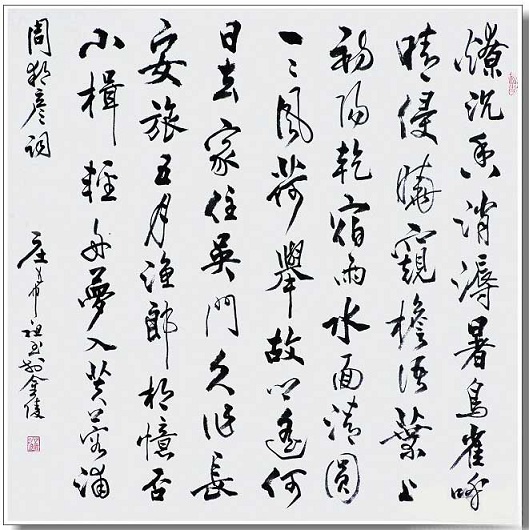 燎沉香消溽暑鳥雀呼
晴侵曉窺檐語葉上
初陽乾宿雨水面清圓
一々風荷舉故鄉遙何
日去家住吳門久作長
安旅五月漁郎相憶否
小楫輕舟夢入芙蓉浦
周邦彥詞
庄希祖书於金陵